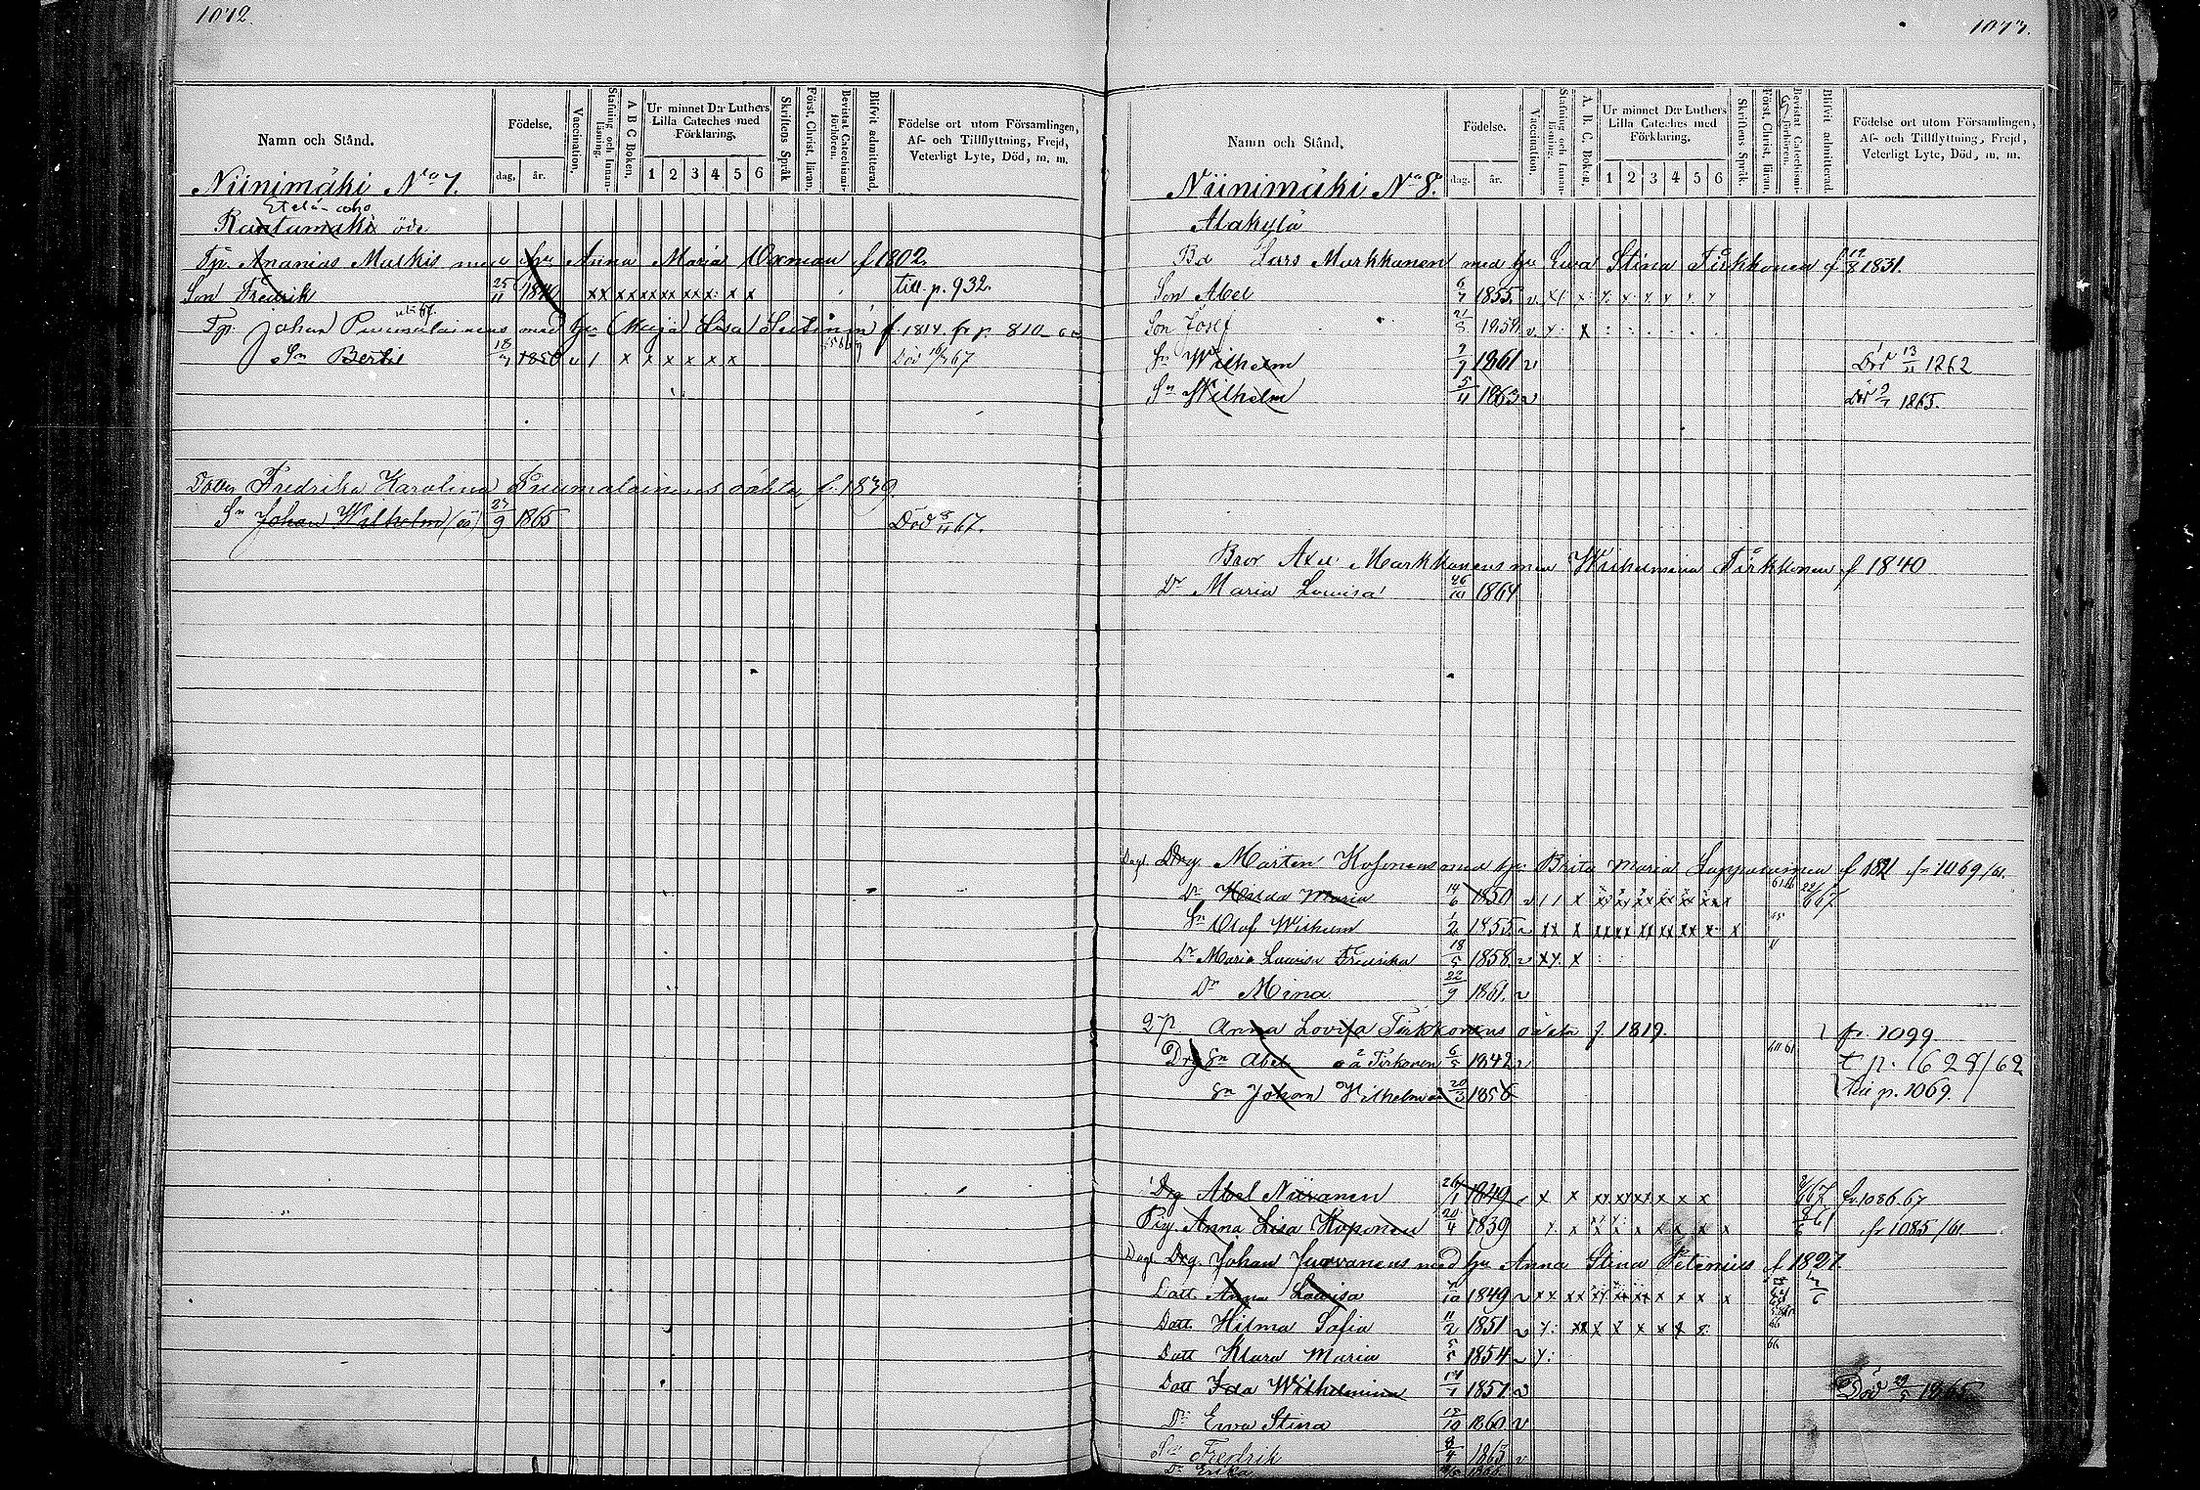 1072.
Namn och Stånd.
Födelse,
dag, år.
Vaccination,
Stafning och Innan-läsning.
A B C Boken,
Ur minnet D:r Luthers
Lilla Cateches med
Förklaring,
1 2 3 4 5 6
Skriftens Språk
Först. Christ. läran,
Bevistat Catechismi-förhören.
Blifvit admitterad,
Födelse ort utom Församlingen,
Af- och Tillflyttning, Frejd,
Veterligt Lyte, Död, m. m.
Niinimäki No 7.
Etelä-aho
Rantamäki öde
Tp. Ananias Maskis med hu Anna Maria Oxman f 1802
Son Fredrik 25/11 1840 till. p. 932.
Tp. Johan Puumalainens med hu (Maja) Lisa f. 1814. fr p. 810
Sn Bertil 18/7 1850 v Död 16/7 67
Dotter Fredrika Karolina Puumalainens oäkta f. 1839.
Sn Johan Wilhelm (oä) 27/9 1865 Död 8/11 67.
1073.
Namn och Stånd,
Födelse.
dag. år.
Vaccination,
Stafning och Innan-läsning,
A. B. C. Boken,
Ur minnet D:r Luthers
Lilla Cateches med
Förklaring.
1 2 3 4 5 6
Skriftens Språk.
Först. Christ. läran,
Bevistat Catechismi-förhören.
Blifvit admitterad
Födelse ort utom Församlingen,
Af- och Tillflyttning, Frejd,
Veterligt Lyte, Död, m. m.
Niinimäki No 8.
Alakylä
Bd Lars Markkanen med hu Ewa Stina Tirkkonen f 19/8 1831.
Son Abel 6/7 1855 v
Son Josef 21/8 1859 v
Sn Wilhelm 7/9 1861 v Död 13/11 1862
Sn Wilhelm 5/11 1863 v Död 2/7 1865.
Bror Axel Markkanens med Wilhelmina Tirkkonen f 1840
Dr Maria Lowisa 26/10 1864
Dagl. Drg. Mårten Kosonens med hu Brita Maria Lappalainen f 1821 fr 1069/61.
Dr Hedda Maria 14/6 1850 v
Sn Olof Wilhelm 1/2 1855 v
Dr Maria Lowisa Fredrika 18/5 1858 v
Dr Mina 22/9 1861. v
Qp. Anna Lovisa Tirkkonens oäkta f. 1819. fr. 1099.
Drg Sn Abel oä Tirkkonen 6/5 1842 v t p. 1628/62
Sn Johan Wilhelm oä 20/3 1856 till p. 1069.
Drg Abel Niiranen 26/1 1849 fr. 1086.67
Pig. Anna Lisa Koponen 20/4 1839 fr 1085/61.
Dagl. Drg. Johan Juvanens med hu Anna Stina Petenius f 1827.
Dott Anna Lowisa 1849 v
Dott Hilma Sofia 11/2 1851 v
Dott Klara Maria 5/5 1854 v
Dott Ida Wilhelmina 1857 v Död 29/5 1865
Dr Ewa Stina 1860 v
Sn Fredrik 8/4 1863 v
Dr Erika